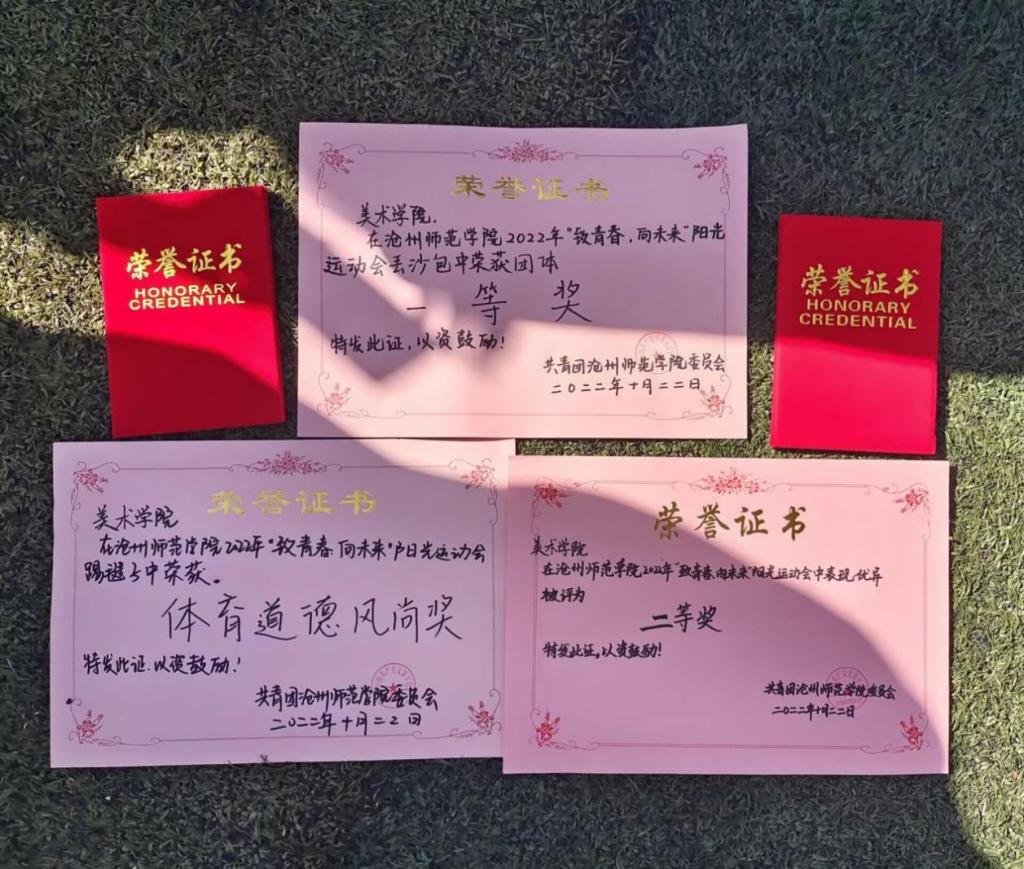 荣誉证书
HONORARY
CREDENTIAL
荣誉证书
美术学院.
在沧州师范学院2022年"致青春,向未来"阳光
运动会丢沙包中荣获团体
一等奖
特发此证,以资鼓励!
共青团沧州师范学院委员会
二〇二二年十月二二日
荣誉证书
HONORARY
CREDENTIAL
荣誉证书
美术学院
在沧州师范学院2022年"致青春 向未来"阳光运动会
踢毽子中荣获。
体育道德风尚奖
特发此证.以资鼓励!
共青团沧州师范学院委员会
二〇二二年十月二2日
荣誉证书
美术学院
在沧州师范学院2022年"致青春,向未来"阳光运动会中表现优异
被评为
二等奖
特发此证,以资鼓励!
共青团沧州师范学院委员会
二〇二二年十月二二日